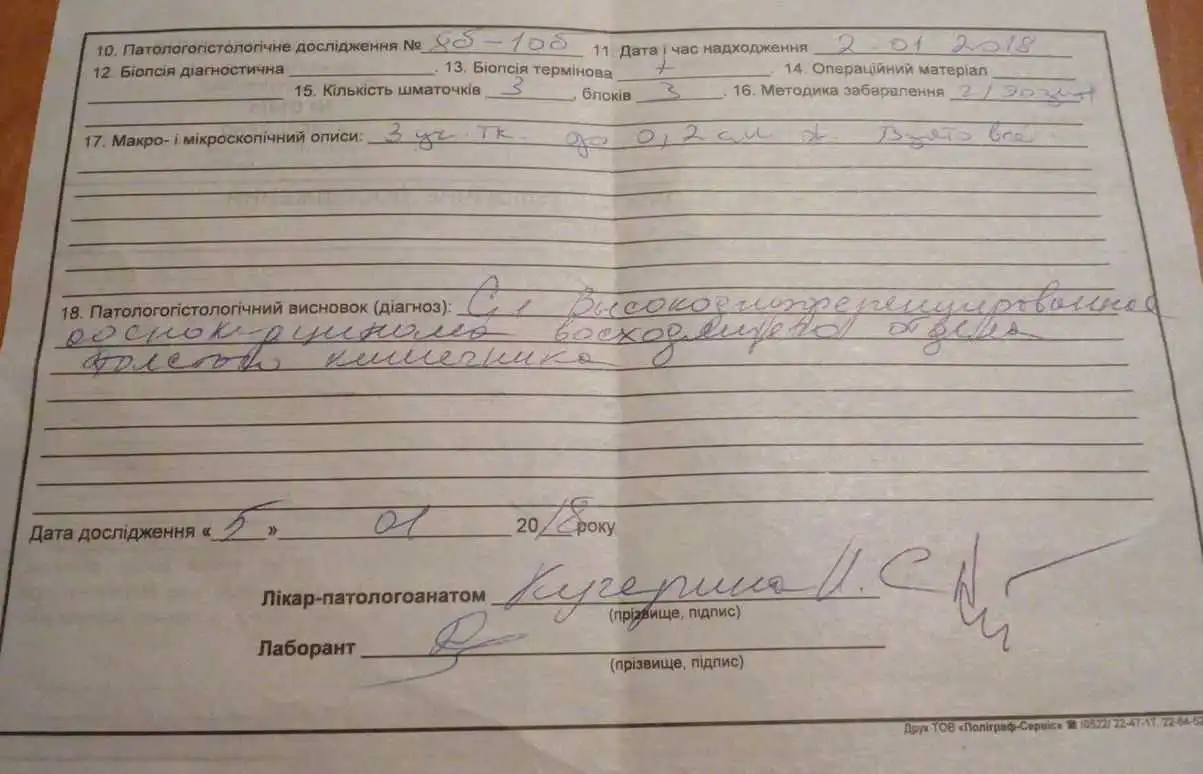 10. Патологогістологічне дослідження № 96-106 11. Дата і час надходження 2 01 2018
12. Біопсія діагностична 13. Біопсія термінова + 14. Операційний матеріал
15. Кількість шматочків 3, блоків 3. 16. Методика забарвлення г/эозин
17. Макро- і мікроскопічний описи: 3 ук. тк. до 0,2 см Взято все
18. Патологогістологічний висновок (діагноз): Высокодифференцированная
аденокарцинома восходящего отдела
толстого кишечника
Дата дослідження «5» 01 2018 року
Лікар-патологоанатом Кучерина И. С
(прізвище, підпис)
Лаборант
(прізвище, підпис)
Друк ТОВ «Поліграф-Сервіс» ☎ (0522) 22-47-17,